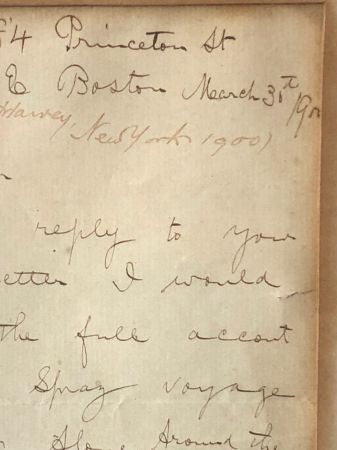 4 Princeton St
E Boston March 31st 190
Harvey, New York 1900)
reply to you
etter I would
the full accont
Spray voyage
Alone Around the